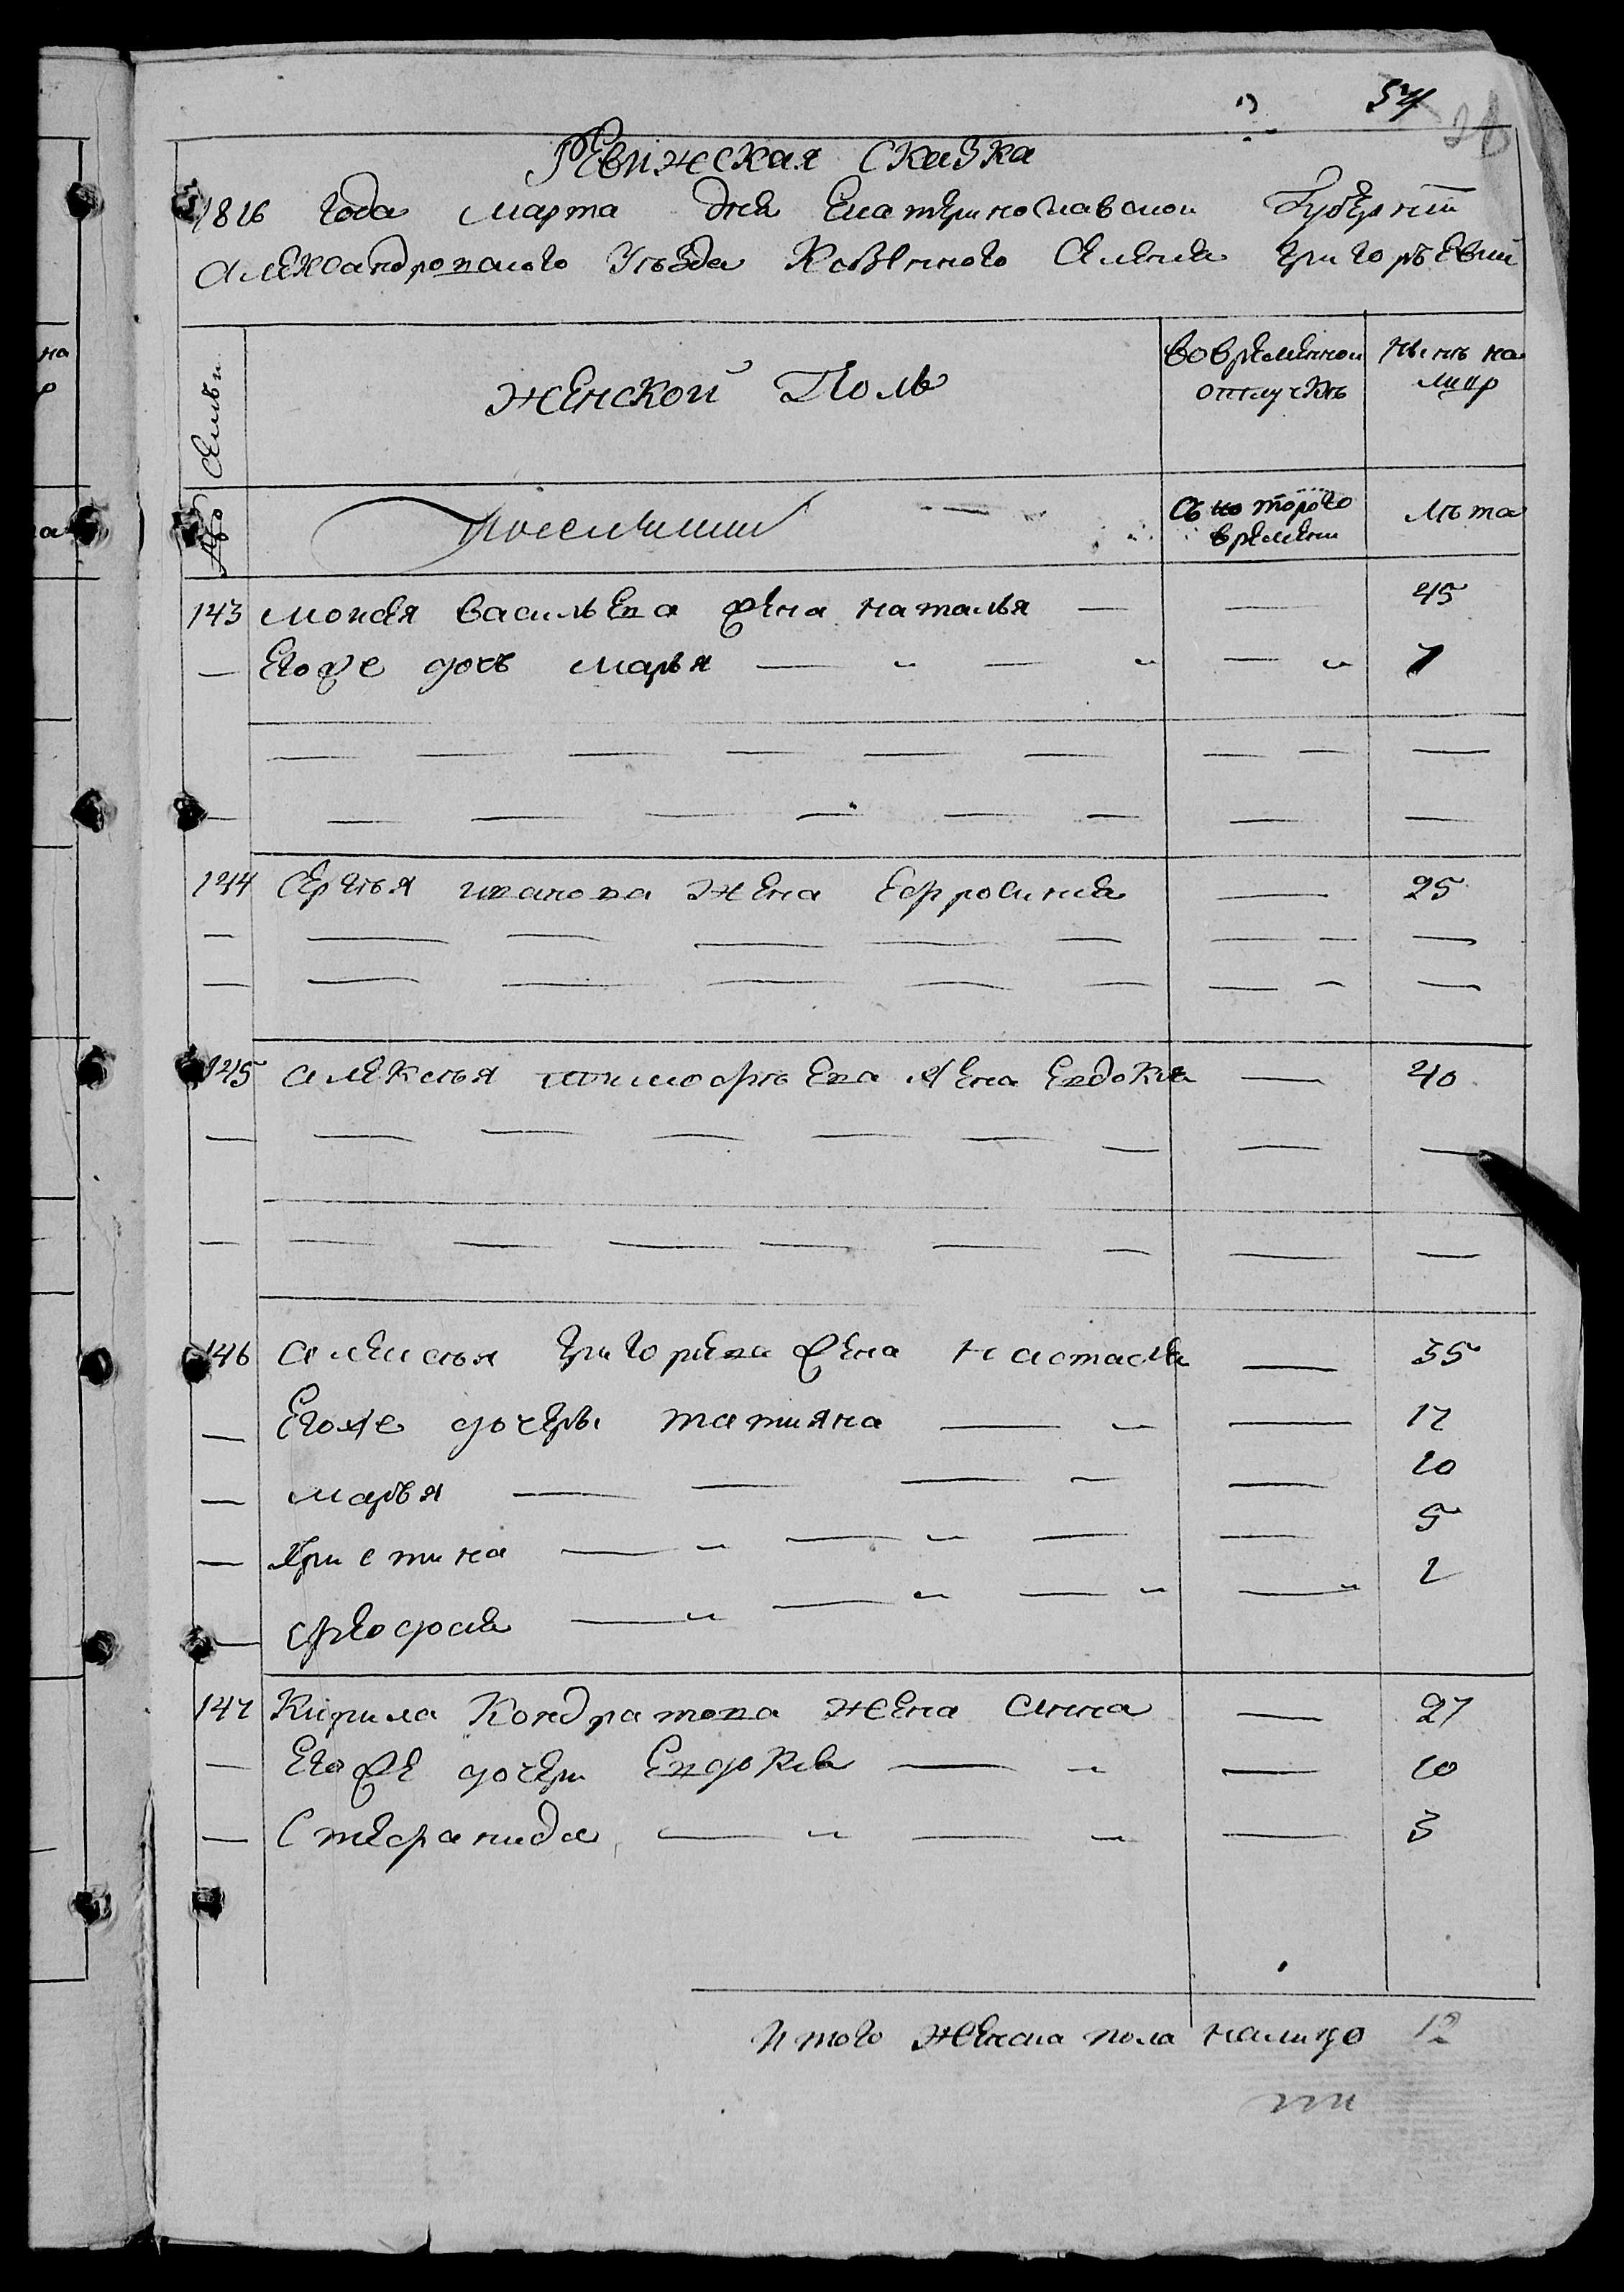 54
Ревижская сказка
1816 года марта дня Екатеринославской Губернии
Александровского Уезда Казенного Селения Григорьевки
Семьи
женской Полъ
вовременной отлучкъ
нынъ на лицо
съ которого времени
лъта
143 моисея васильева жена наталья — — 45
— Егоже дочь марья — — — 7
144 Сергъя иванова жена Ефросиния — 25
145 алексъя тимофъева жена Евдокия — 40
146 алексъя григориева жена настасия — 35
— Егоже дочери татияна — — 17
— марья — — — — 10
— христина — — — — 5
— феодосия — — — — 2
147 Кирила Кондратова жена анна — 27
— Егоже дочери Евдокия — — 10
— Стефанида — — — 3
Итого женска пола налицо 12